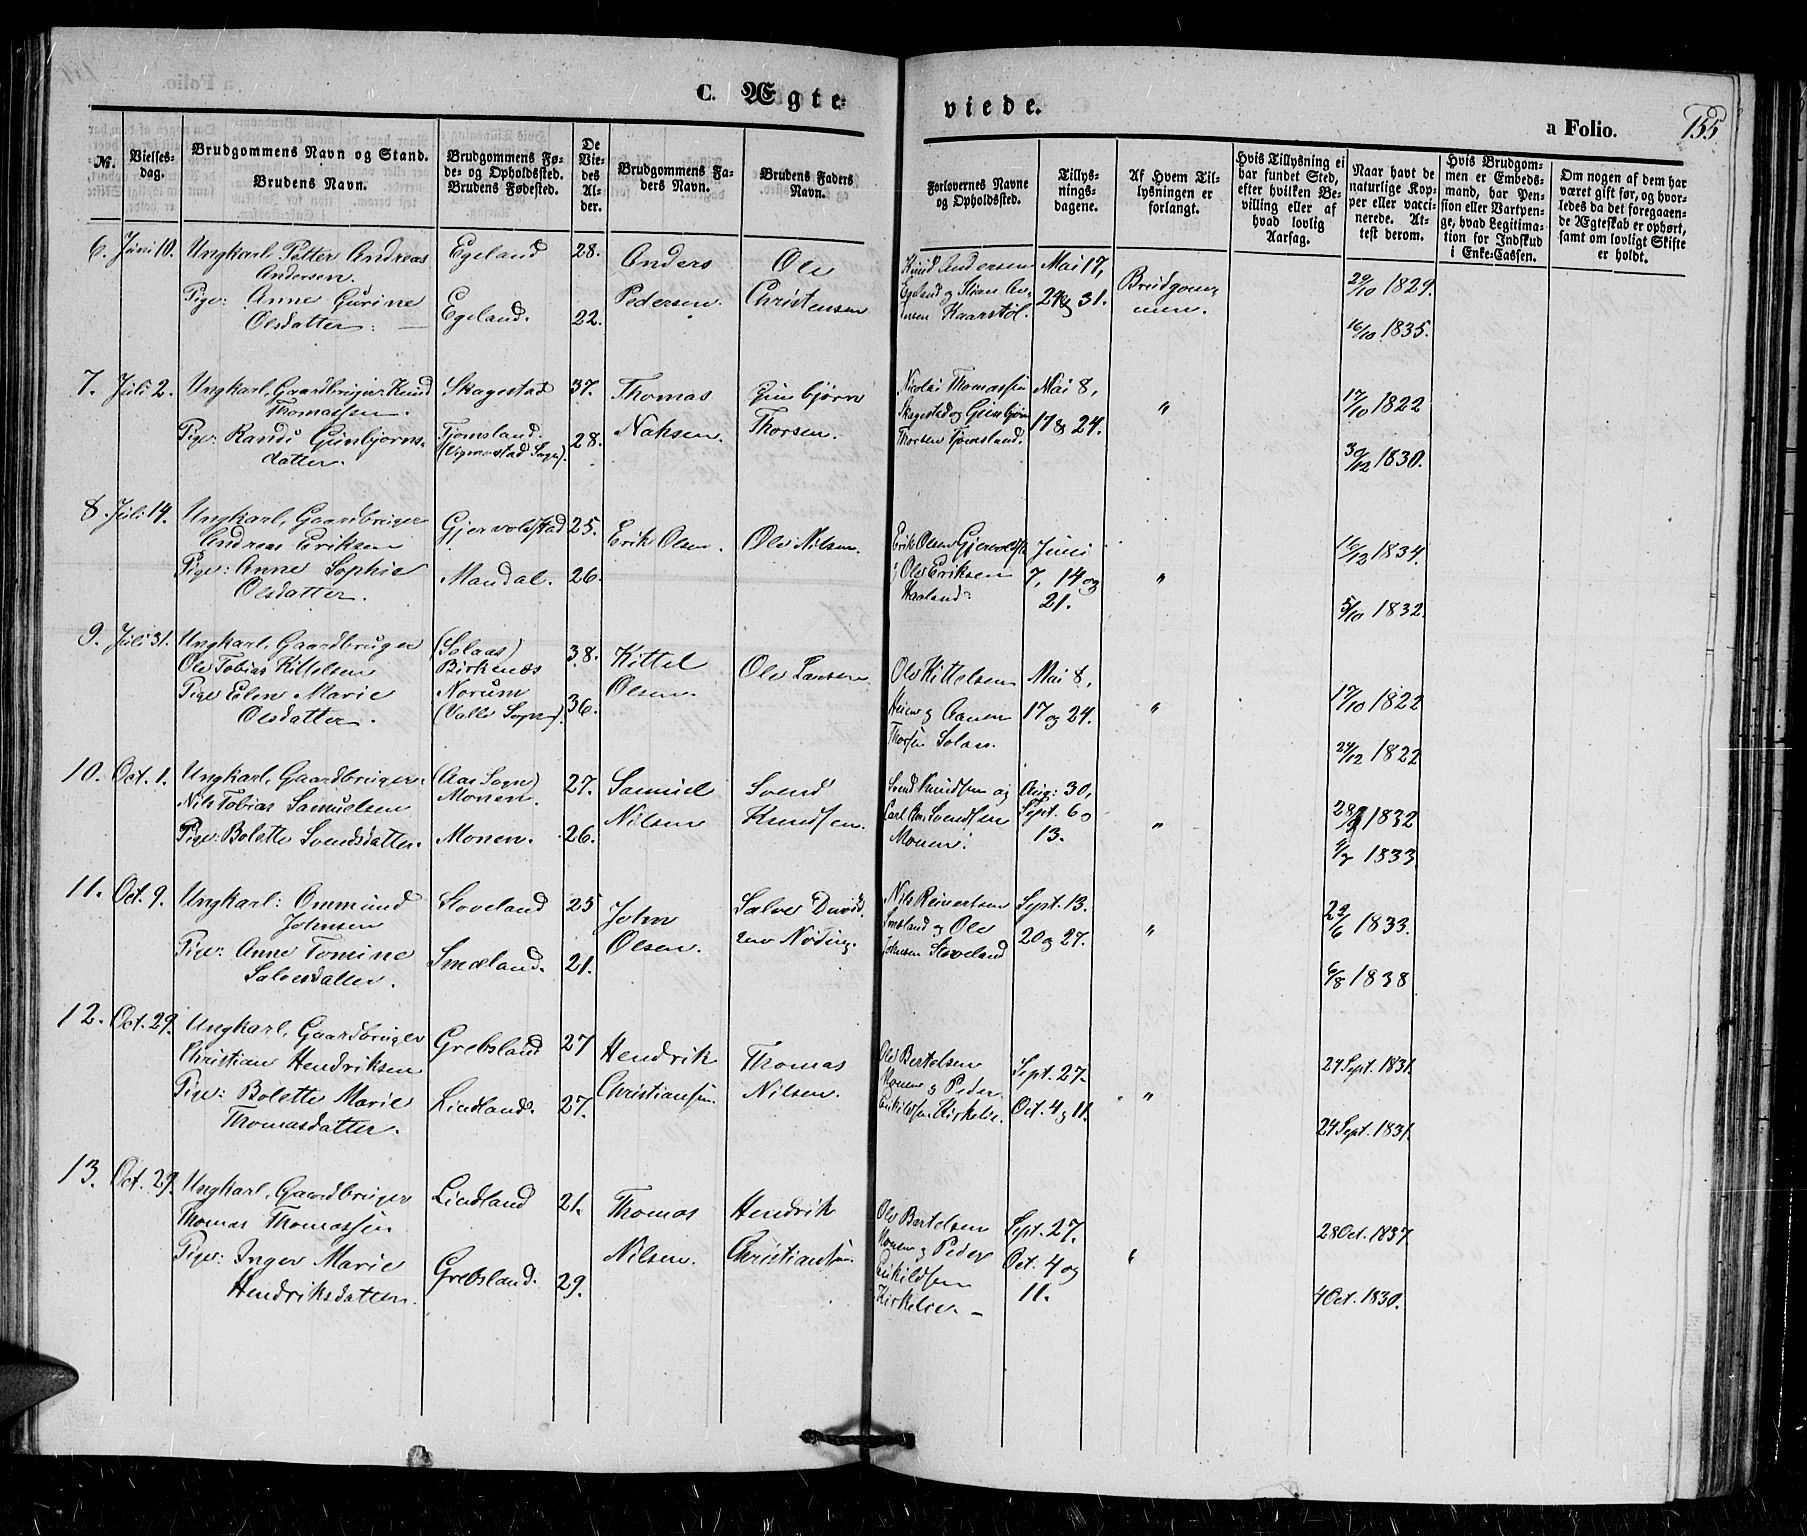 C. Ægte-
viede.
a Folio.
155
Nr.
Vielses-
dag.
Brudgommens Navn og Stand.
Brudens Navn.
Brudgommens Fø-
de- og Opholdssted.
Brudens Fødested.
De
Vie-
des
Al-
der.
Brudgommens Fa-
ders Navn.
Brudens Faders
Navn.
Forlovernes Navne
og Opholdssted.
Tillys-
nings-
dagene.
Af Hvem Til-
lysningen er
forlangt.
Hvis Tillysning ei
har fundet Sted,
efter hvilken Be-
villing eller af
hvad lovlig
Aarsag.
Naar havt de
naturlige Kop-
per eller vacci-
nerede. At-
test derom.
Hvis Brudgom-
men er Embeds-
mand, har Pen-
sion eller Vartpen-
ge, hvad Legitima-
tion for Indskud
i Enke-Cassen.
Om nogen af dem har
været gift før, og hvor-
ledes da det foregaaen-
de Ægteskab er ophørt,
samt om lovligt Skifte
er holdt.
6. Juni 10. Ungkarl Petter Andreas
Andersen.
Pige: Anne Gurine
Olsdatter.
Egeland 28.
Egeland. 22.
Anders
Pedersen.
Ole
Christensen
Knud Andersen
Egeland og
Kaarstøl.
Mai 17,
24 og 31.
Brudgom-
men.
29/10 1829.
16/10 1835.
7. Juli 2. Ungkarl, Gaardbruger Knud
Thomassen.
Pige: Randi Gunbjørns-
datter.
Skagestad 37.
Tjomsland.
(Vigmostad Sogn). 28.
Thomas
Naksen.
Gunbjørn
Thorsen.
Nicolai Thomassen
Skagestad og Gunbjørn
Thorsen Tjomsland.
Mai 8,
17 & 24.
"
17/10 1822
30/12 1830.
8. Juli 14. Ungkarl, Gaardbruger
Andreas Eriksen
Pige: Anne Sophie
Olsdatter.
Gjervoldstad 25.
Mandal. 26.
Erik Olsen.
Ole Nilsen.
Erik Olsen Gjervoldst.
Ole Eriksen
Haaland.
Juni
7, 14 og
21.
"
16/12 1834.
5/10 1832.
9. Juli 31. Ungkarl, Gaardbruger
Ole Tobias Kittelsen
Pige Elen Marie
Olsdatter.
(Solaas)
Birkenæs 38.
Norum
(Valle Sogn). 36.
Kittel
Olsen.
Ole Larsen.
Ole Kittelsen
Heien og Aanen
Thorsen Solaas.
Mai 8,
17 og 24.
"
17/10 1822
24/12 1822
10. Oct. 1. Ungkarl, Gaardbruger
Nils Tobias Samuelsen
Pige: Bolette Svendsdatter.
(Aas Sogn)
Monen. 27.
Monen. 26.
Samuel
Nilsen
Svend
Knudsen.
Svend Knudsen og
Carl Svendsen
Monen.
Aug: 30,
Sept. 6 og
13.
"
28/9 1832
4/7 1833.
11. Oct. 9. Ungkarl: Ommund
Johnsen
Pige: Anne Tomine
Salvesdatter.
Stoveland 25
Smæland. 21.
John
Olsen.
Salve David-
sen Nøding.
Nils Reiertsen
Smæland og Ole
Johnsen Stoveland
Sept. 13.
20 og 27.
"
23/6 1833.
6/8 1838
12. Oct. 29. Ungkarl, Gaardbruger
Christian Hendriksen
Pige: Bolette Marie
Thomasdatter.
Grebsland 27
Lindland. 27.
Hendrik
Christiansen.
Thomas
Nilsen.
Ole Bertelsen
Monen og Peder
Enkildsen Kirkelie.
Sept. 27.
Oct. 4 og 11.
"
24 Sept. 1831.
24 Sept. 1831.
13. Oct. 29. Ungkarl, Gaardbruger
Thomas Thomassen
Pige: Inger Marie
Hendriksdatter.
Lindland 21.
Grebsland. 29.
Thomas
Nilsen.
Hendrik
Christiansen.
Ole Bertelsen
Monen og Peder
Enkildsen
Kirkelie.
Sept. 27.
Oct. 4 og
11.
"
28 Oct. 1837
4 Oct. 1830.